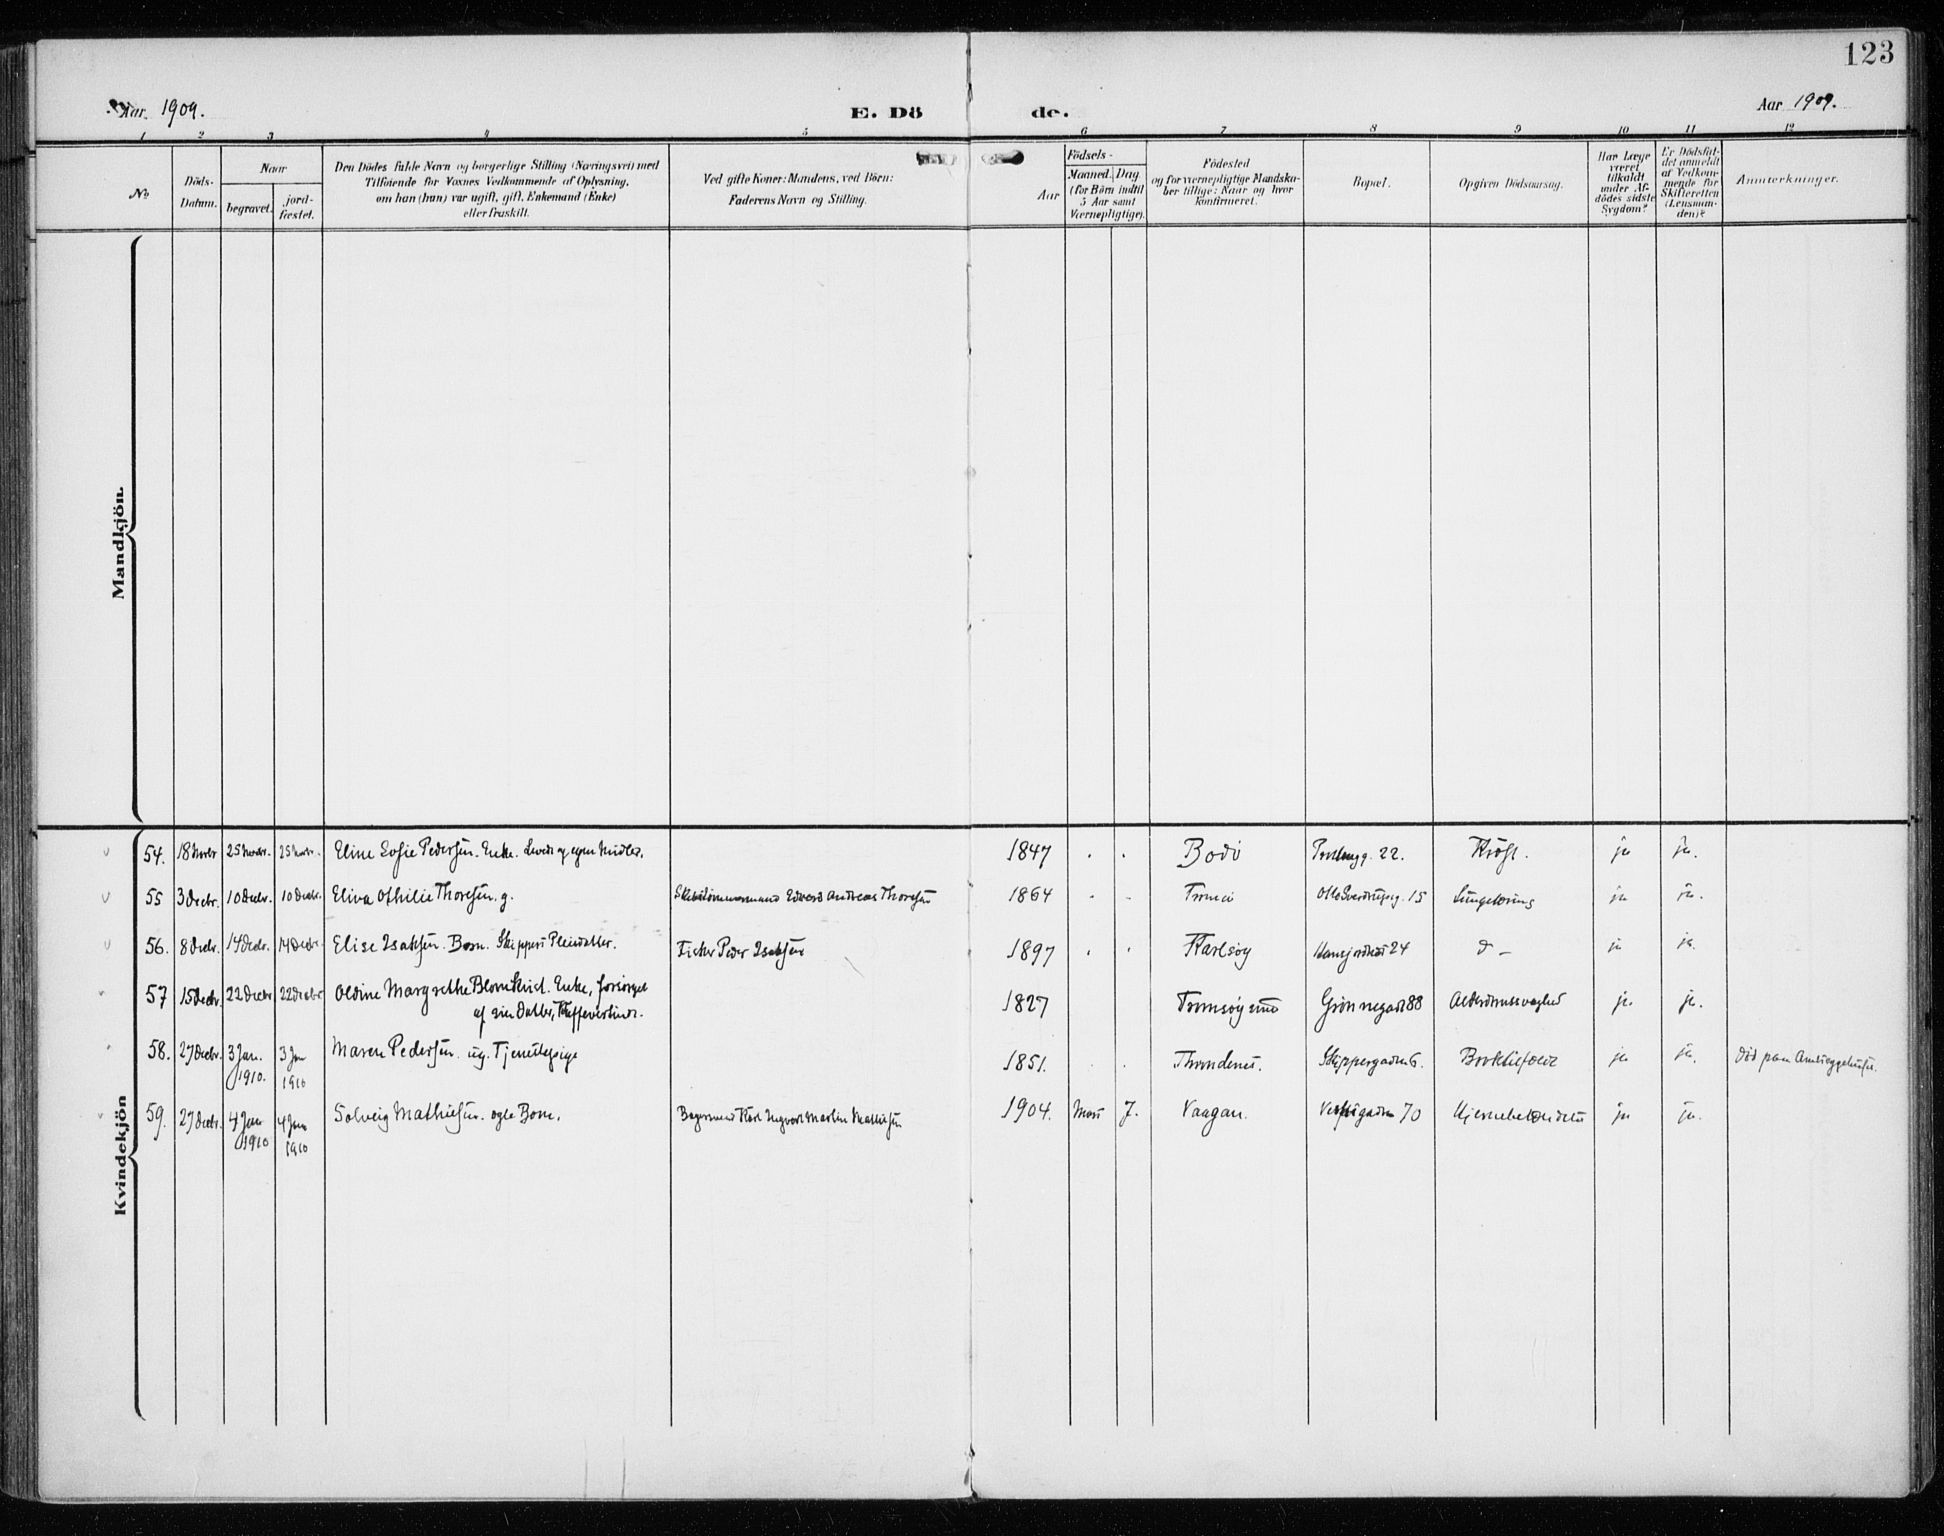 123
Aar 1909.
E. Döde.
Aar 1909.
1 2 3 4 5 6 7 8 9 10 11 12
No
Döds-Datum.
Naar
begravet.
jord-fæstet.
Den Dödes fulde Navn og borgerlige Stilling (Næringsvei) med
Tilföiende for Voxnes Vedkommende af Oplysning,
om han (hun) var ugift, gift, Enkemand (Enke)
eller fraskilt.
Ved gifte Koner: Mandens, ved Börn:
Faderens Navn og Stilling.
Aar
Födsels-
Maaned. Dag
(for Börn indtil
5 Aar samt
Værnepligtige).
Födested
og for værnepligtige Mandska-
ber tillige: Naar og hvor
konfirmeret.
Bopæl.
Opgiven Dödsaarsag.
Har Læge
været
tilkaldt
under Af-
dödes sidste
Sygdom?
Er Dödsfal-
det anmeldt
af Vedkom-
mende for
Skifteretten
(Lensman-
den)?
Anmærkninger.
Mandkjön.
Kvindekjön
54. 18 Novbr 25 Novbr. 25 Novbr. Eline Sofie Pedersen. Enke. Leved af egne Midler. 1847 Bodö 22. ja ja.
55 3 Decbr. 10 Decbr. 10 Decbr. Eliva Othilie Thoresen. g. Edvard Andreas Thoresen 1864 Tromsö Otto Sverdrupsg. 15 ja ja.
56. 8 Decbr. 14 Decbr. 14 Decbr. Elise Isaksen. Barn. Skippers Pleiedatter. Fisker Peder Isaksen 1897 Karlsöy 24 d – ja ja.
57 15 Decbr. 22 Decbr 22 Decbr Oldine Margrethe Blomkvist. Enke, forsörget
af sin Datter, Kaffevertinde. 1827 Tromsöysund Grönnegad. 88 Alderdomssvaghed ja. ja.
58. 27 Decbr. 3 Jan. 1910. 3 Jan 1910 Maren Pedersen. ug. Tjenestepige 1851. Throndenes. Skippergaden 6. ja ja. död paa Amtssygehuset.
59. 27 Decbr. 4 Jan 1910 4 Jan 1910 Solveig Mathisen. ægte Barn. Karl Ingvart Martin Mathisen 1904. Mars 7. Vaagan. 70 Hjernebetændelse ja ja.